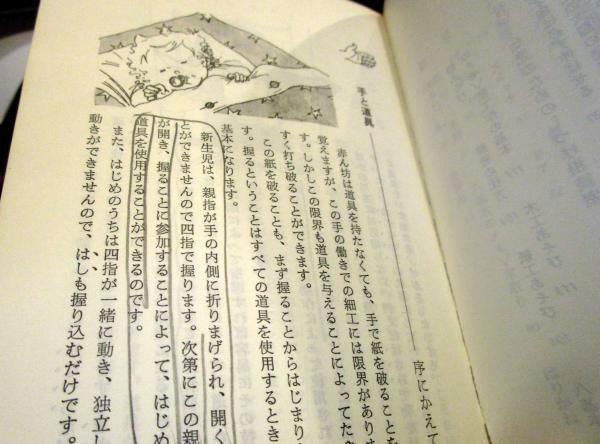 序にかえて
手と道具
赤ん坊は道具を持たなくても、手で紙を破ることを
覚えますが、この手の働きでの細工には限界がありま
す。しかしこの限界も道具を与えることによってた
すく打ち破ることができます。
この紙を破ることも、まず握ることからはじまり
す。握るということはすべての道具を使用するとき
基本になります。
新生児は、親指が手の内側に折りまげられ、開く
とができませんので四指で握ります。次第にこの親
が開き、握ることに参加することによって、はじめ
道具を使用することができるのです。
また、はじめのうちは四指が一緒に動き、独立し
動きができませんので、はしも握り込むだけです。